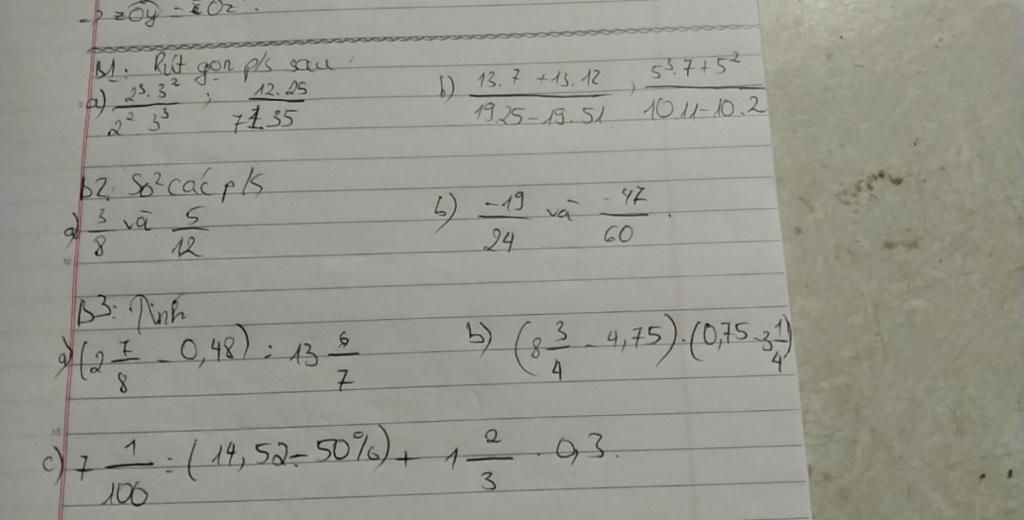 → zOy = zOz.
B1: Rút gọn p/s sau
a) 2³.3²/2² 3³ ; 12.25/71.35 b) 13.7+13.12/19.25-19.51 , 5³.7+5²/10.11-10.2
B2: So² các p/s
a) 3/8 và 5/12 b) -19/24 và -47/60.
B3: Tính
a) (2 7/8 - 0,48) : 13 6/7 b) (8 3/4 - 4,75).(0,75 - 3 1/4)
c) 7 1/100 : (14,52 - 50%) + 1 2/3 . 0,3.